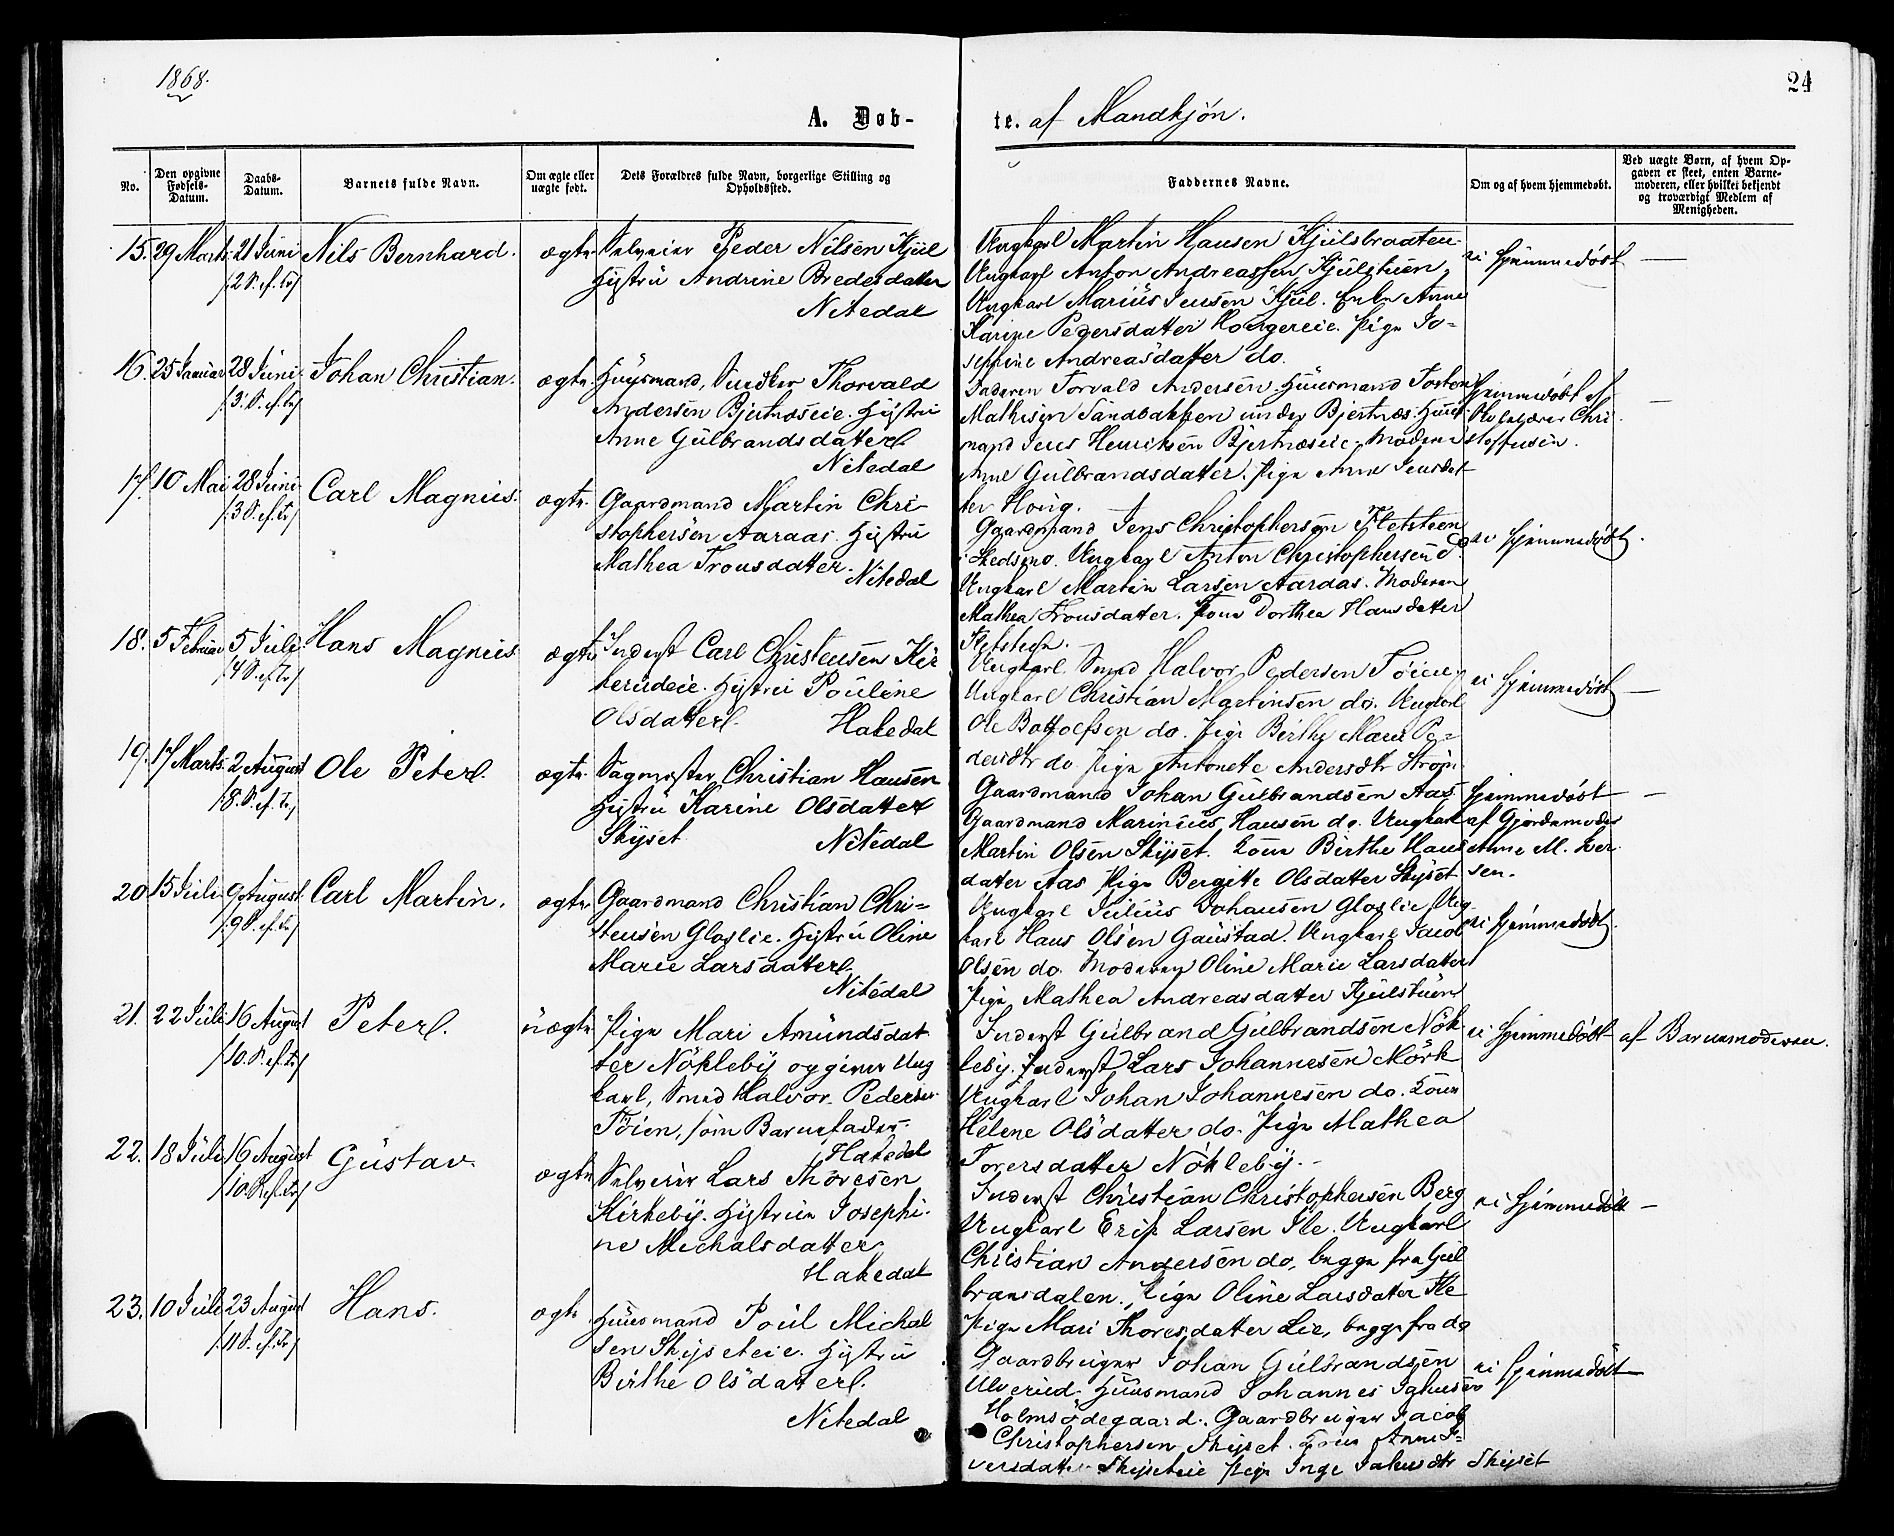 1868.
24
A. Døb-
te. af Mandkjøn.
No.
Den opgivne Fødsels-Datum.
Daabs-Datum.
Barnets fulde Navn.
Om ægte eller uægte født.
Dets Forældres fulde Navn, borgerlige Stilling og Opholdssted.
Faddernes Navne.
Om og af hvem hjemmedøbt.
Ved uægte Børn, af hvem Opgaven er skeet, enten Barnemoderen, eller hvilket bekjendt og troværdigt Medlem af Menigheden.
15. 29 Marts 21 Juni Nils Bernhard. ægte
/2 S. ef. Tr/
Selveier Peder Nilsen Kjul
Hustru Andrine Bredesdatter
Nitedal
Ungkarl Martin Hansen Kjulsbraaten
Ungkarl Anton Andreassen Kjulstuen,
Ungkarl Marius Jensen Kjul. Enke Anne
Karine Pedersdatter Hougereie. Pige Jo-
sephine Andreasdatter do.
ei hjemmedøbt —
16. 25 Januar 28 Juni Johan Christian. ægte
/3. S. ef. Tr/
Huusmand, Snedker Thorvald
Andersen Bjertnæseie. Hustru
Anne Gulbrandsdatter
Nitedal
Faderen Torvald Andersen. Huusmand Torsten
Mathisen Sandbakken under Bjertnæs. Huus-
mand Jens Henriksen Bjertnæseie. Moderen
Anne Gulbrandsdatter. Pige Anne Jensdat-
ter Houg.
hjemmedøbt af
Skolelærer Chri-
stoffersen.
—
17. 10 Mai 28 Juni Carl Magnus. ægte
/3 S. ef. Tr/
Gaardmand Martin Chri-
stophersen Aaraas. Hustru
Mathea Tronsdatter.
Nitedal
Gaardmand Jens Christophersen Fletsteen
i Skedsmo. Ungkarl Anton Christophersen do
Ungkarl Martin Larsen Aaraas. Moderen
Mathea Tronsdatter. Kone Dorthea Hansdatter
Fletsteen.
ei hjemmedøbt.
18. 5 Februar 5 Juli Hans Magnus ægte
/4 S. ef. Tr/
Inderst Carl Christensen Kir-
kerudeie. Hustru Pouline
Olsdatter.
Hakedal
Ungkarl Smed Halvor Pedersen Tøien,
Ungkarl Christian Martinsen do. Ungkarl
Ole Bottolfsen do. Pige Birthe Marie Pe-
dersdtr do Pige Antonete Andersdtr Strøm
ei hjemmedøbt —
19. 17 Marts. 2 August Ole Peter. ægte.
/8. S. ef. Tr/
Sagmester Christian Hansen
Hustru Karine Olsdatter
Skyset
Nitedal
Gaardmand Johan Gulbrandsen Aas
Gaardmand Marinius Hansen do. Ungkarl
Martin Olsen Skyset. Kone Birthe Hans-
datter Aas Pige Bergitte Olsdatter Skyset
hjemmedøbt —
af Gjordemoder
Anne M. Iver-
sen.
20 15 Juli 9 August Carl Martin. ægte
/9 S. ef. Tr/
Gaardmand Christian Chri-
stensen Gloslie. Hustru Oline
Marie Larsdatter.
Nitedal
Ungkarl Julius Johansen Gloslie Ung-
karl Hans Olsen Gaustad. Ungkarl Jacob
Olsen do. Moderen Oline Marie Larsdatter
Pige Mathea Andreasdatter Kjulstuen
ei hjemmedøbt.
21. 22 Juli 16 August Peter. uægte
/10. S. ef. Tr/
Pige Mari Amundsdat-
ter Nökleby opgiver Ung-
karl, Smed Halvor Pedersen
Töien, som Barnefader.
Hakedal
Inderst Gulbrand Gulbrandsen Nök-
leby. Inderst Lars Johannesen Mörk
Ungkarl Johan Johannesen do. Kone
Helene Olsdatter do. Pige Mathea
Torersdatter Nökleby.
ei hjemmedøbt af Barnemoderen.
22. 18 Juli 16 August Gustav. ægte
/10. S. ef. Tr/
Selveier Lars Thoresen
Kirkeby. Hustrue Josephi-
ne Michalsdatter
Hakedal
Inderst Christian Christophersen Berg
Ungkarl Erik Larsen Ile. Ungkarl
Christian Andersen do, begge fra Gul-
bransdalen. Pige Oline Larsdatter Ile
Pige Mari Thoresdatter Lie, begge fra do
ei hjemmedøbt —
23. 10 Juli 23 August Hans. ægte
/11 S. ef. Tr/
Huusmand Poul Michal-
sen Skyseteie. Hustru
Birthe Olsdatter.
Nitedal
Gaardbruger Johan Gulbrandsen
Ulverud. Huusmand Johannes
Holmsödegaard. Gaardbruger Jacob
Christophersen Skyset. Kone Anne I-
versdatter Skyseteie Pige Inge Skyset
ei hjemmedøbt